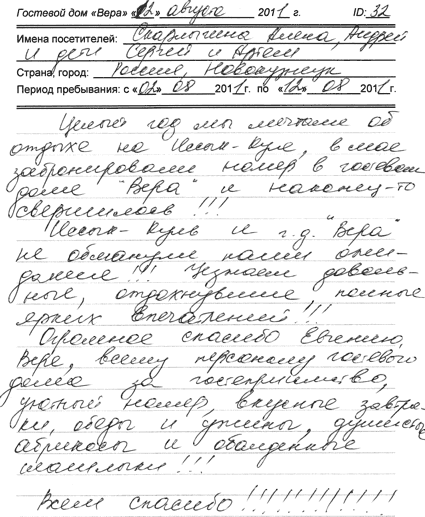 Гостевой дом «Вера» «12» августа 2011 г. ID: 32
Имена посетителей: Скарлыгина Алена, Андрей
и дети Сергей и Артем
Страна, город: Россия, Новокузнецк
Период пребывания: с «02» 08 2011 г. по «12» 08 2011 г.
Целый год мы мечтали об
отдыхе на Иссык-Куле, в мае
забронировали номер в гостевом
доме "Вера" и наконец-то
свершилось !!!
Иссык-Куль и г.д. "Вера"
не обманули наши ожи-
дания !!! Уезжаем доволь-
ные, отдохнувшие полные
ярких впечатлений !!!
Огромное спасибо Евгению,
Вере, всему персоналу гостевого
дома за гостеприимство,
уютный номер, вкусные завтра-
ки, обеды и ужины, душистые
абрикосы и обалденные
шашлыки !!!
Всем спасибо !!!!!!!!!!!!